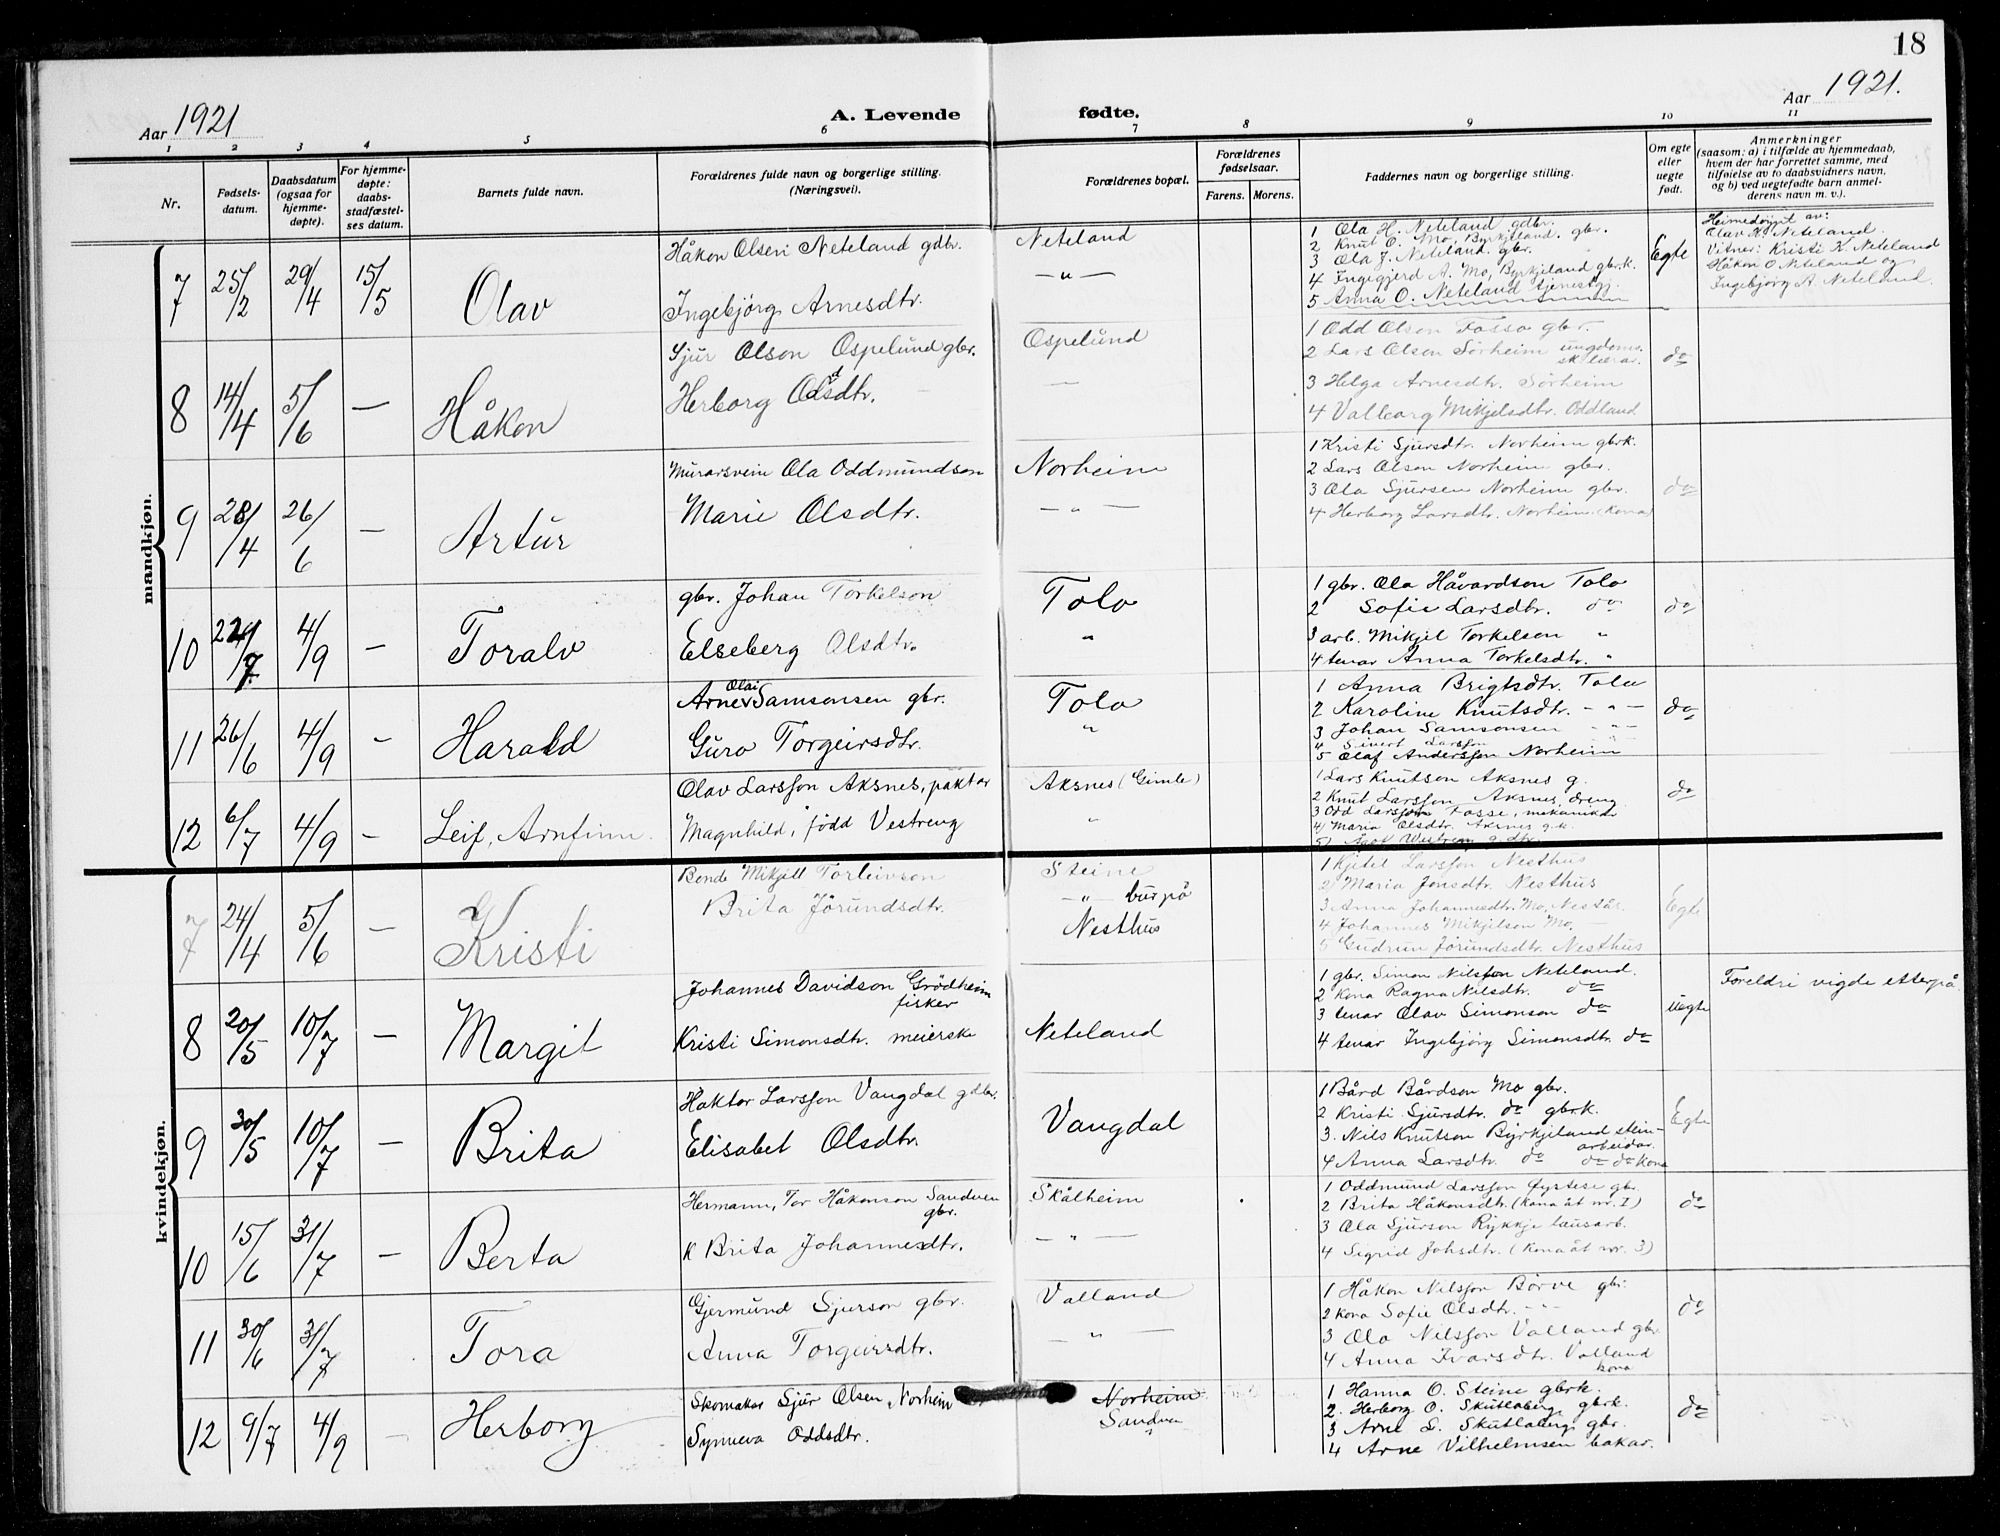 18
Aar 1921
A. Levende fødte.
Aar 1921.
1 2 3 4 5 6 7 8 9 10 11
Nr.
Fødsels-
datum.
Daabsdatum
(ogsaa for
hjemme-
døpte).
For hjemme-
døpte:
daabs-
stadfæstel-
ses datum.
Barnets fulde navn.
Forældrenes fulde navn og borgerlige stilling.
(Næringsvei).
Forældrenes bopæl.
Forældrenes
fødselsaar.
Farens. Morens.
Faddernes navn og borgerlige stilling.
Om egte
eller
uegte
født.
Anmerkninger
(saasom: a) i tilfælde av hjemmedaab,
hvem der har forrettet samme, med
tilføielse av to daabsvidners navn,
og b) ved uegtefødte barn anmel-
derens navn m. v.).
mandkjøn.
7 25/2 29/4 15/5 Olav
Håkon Olsen Neteland gdbr.
Ingebjörg Arnesdtr.
Neteland
— " —
1 Ola H. Neteland gdbr.
2 Knut O. Mo, Byrkjeland. gbr.
3 Ola J. Neteland. gbr.
4 Ingegjerd A. Mo, Byrkjeland gbrk.
5 Anna O. Neteland tjenestgj.
Egte
Heimedöypt av:
Olav H. Neteland.
Vitner: Kristi K. Neteland
Håkon O. Neteland og
Ingebjörg A. Neteland.
8 14/4 5/6 — Håkon
Sjur Olson Ospelund gbr.
Herborg Oddsdtr.
Ospelund
—
1 Odd Olson Fosso gbr.
2 Lars Olson Sörheim ungdoms.
sk.lærar.
3 Helga Arnesdtr. Sörheim
4 Valborg Mikjelsdtr. Oddland
do
9 28/4 26/6 — Artur
Murarsvein Ola Oddmundson
Marie Olsdtr.
Norheim
— " —
1 Kristi Sjursdtr. Norheim gbrk.
2 Lars Olson Norheim gbr.
3 Ola Sjursen Norheim gbr.
4 Herborg Larsdtr. Norheim (kona)
do
10 /7 4/9 — Toralv
gbr. Johan Torkelson
Elseberg Olsdtr.
Tolo
"
1 gbr. Ola Håvardson Tolo
2 Sofie Larsdtr. do
3 arb. Mikjel Torkelson "
4 tenar Anna Torkelsdtr. "
do
11 26/6 4/9 — Harald
Arne Olai Samsonsen gbr.
Guro Torgeirsdtr.
Tolo
"
1 Anna Brigtsdtr. Tolo
2 Karoline Knutsdtr. — " —
3 Johan Samsonsen — " —
4 Sivert Larsson
5 Olaf Andersson Norheim
do
12 6/7 4/9 — Leif, Arnfinn
Olav Larsson Aksnes, paktar
Magnhild, född Vestreng
Aksnes (Gimle)
"
1 Lars Knutson Aksnes g.
2 Knut Larsson Aksnes, dreng
3 Odd Larsson Fosse, mekaniker
4) Maria Olsdtr. Aksnes g.k.
do
kvindekjøn.
7 24/4 5/6 — Kristi
Bonde Mikjell Torleivson
Brita Jörundsdtr.
Steine
— " — bur på
Nesthus
1 Kjetel Larsson Nesthus
2) Maria Jonsdtr. Nesthus
3 Anna Johannesdtr. Mo,
4 Johannes Mikjelson Mo,
5 Gudrun Jörundsdtr. Nesthus
Egte
8 20/5 10/7 — Margit
Johannes Davidson Grödheim
fisker
Kristi Simonsdtr. meierske
Neteland
1 gbr. Simon Nilsson Neteland.
2 kona Ragna Nilsdtr. do
3 tenar Olav Simonson do
4 tenar Ingebjörg Simonsdtr. do
uegte
Foreldri vigde etterpå
9 30/5 10/7 — Brita
Haktor Larsson Vangdal gdbr.
Elisabet Olsdtr.
Vangdal
1 Bård Bårdson Mo gbr.
2 Kristi Sjursdtr. do gbrk.
3. Nils Knutson Byrkjeland stein-
arbeidar.
4 Anna Larsdtr. do do do kona
Egte
10 15/6 31/7 — Berta
Hermann, Tor Håkonson Sandven
gbr.
k Brita Johannesdtr.
Skålheim
— " —
1 Oddmund Larsson Öystese gbr.
2 Brita Håkonsdtr. (kona åt nr. 1)
3 Ola Sjurson Rykkje lausarb.
4 Sigrid Johsdtr. (kona åt nr. 3)
do
11 30/6 31/7 — Tora
Gjermund Sjurson gbr.
Anna Torgeirsdtr.
Valland
— " —
1 Håkon Nilsson Börve gbr.
2 kona Sofie Olsdtr. — " —
3 Ola Nilsson Valland gbr
4 Anna Ivarsdtr. Valland
kona
do
12 9/7 4/9 — Herborg
Skomaker Sjur Olsen, Norheim
Synneva Oddsdtr.
Norheim
Sandven
1 Hanna O. Steine gbrk.
2. Herborg O. Skutlaberg, gbrk.
3 Arne L. Skutlaberg, gbr.
4 Arne Vilhelmsen bakar.
do